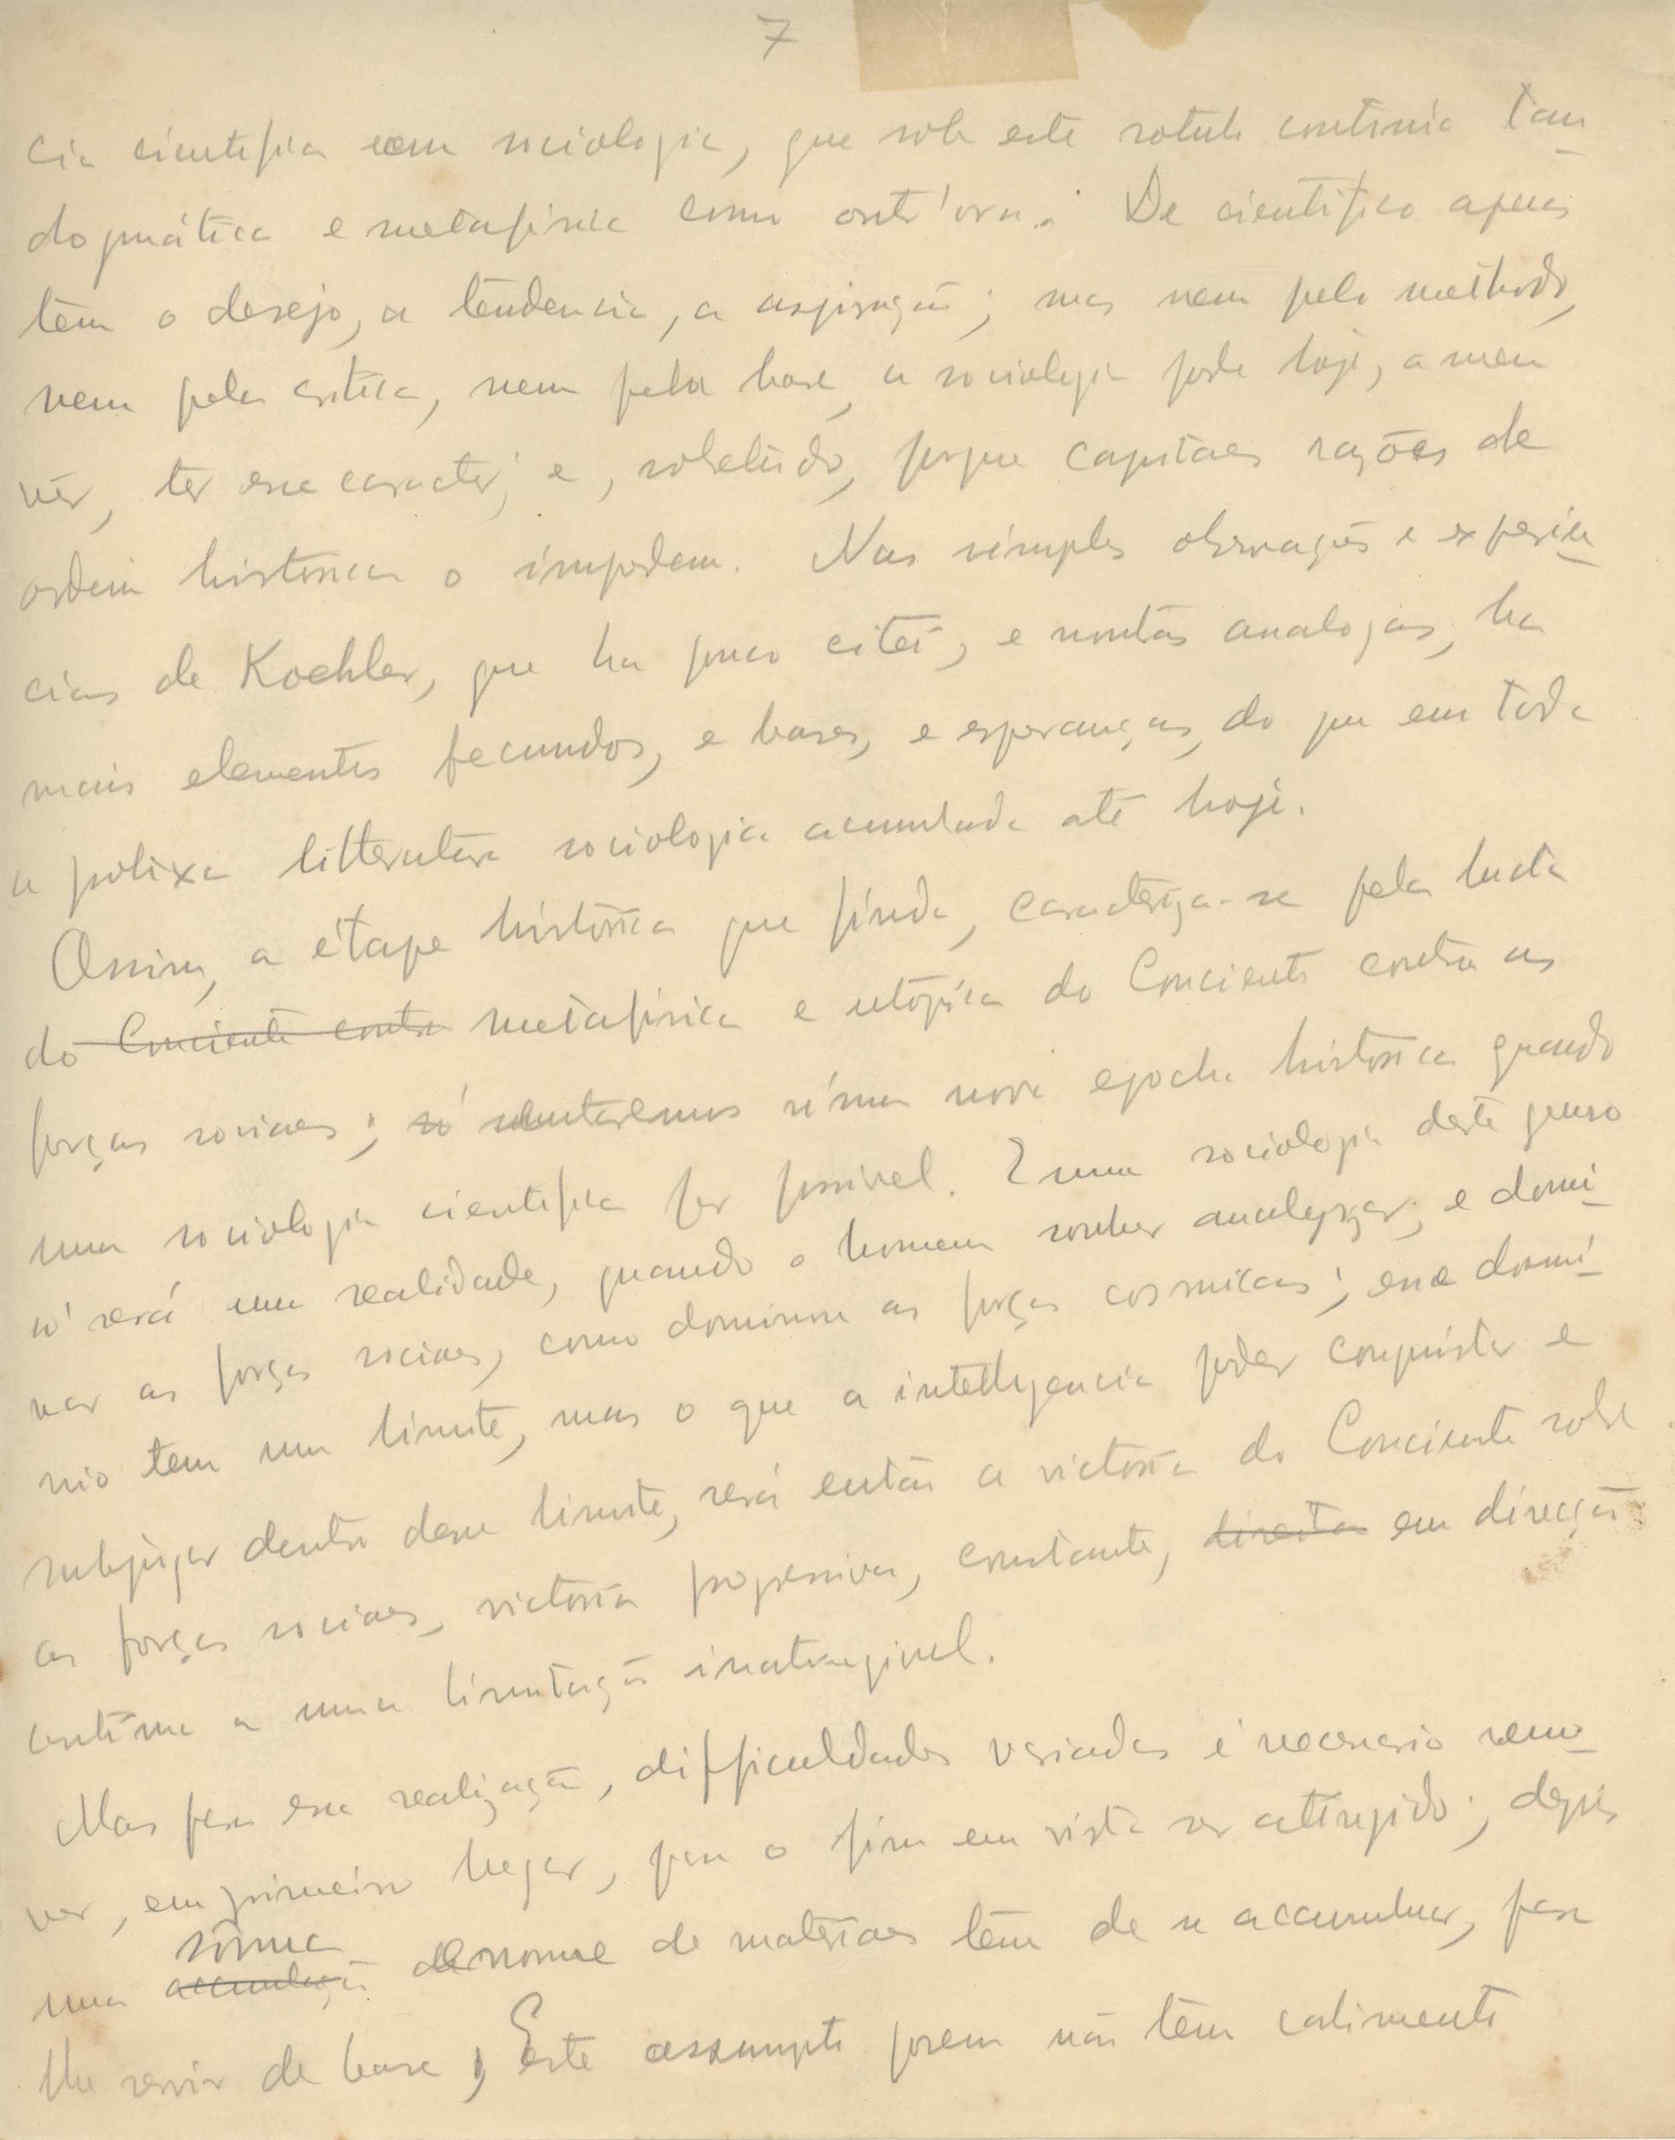 7
cia cientifica com sociologia, que sob este rotulo continúa tam
dogmática e metafisica como outr'ora. De cientifico apenas
tem o desejo, a tendencia, a aspiração; mas nem pelo methodo,
nem pela critica, nem pela base, a sociologia pode hoje, a meu
vêr, ter esse caracter; e, sobretudo, porque capitaes razões de
ordem historica o impedem. Nas simples observações e experien
cias de Koehler, que ha pouco citei, e noutras analogas, ha
mais elementos fecundos, e bases, e esperanças, do que em toda
a prolixa litteratura sociologica acumulada até hoje.
Assim, a étape histórica que finda, caracteriza-se pela lucta
do Conciente contra metafisica e utópica do Conciente contra as
forças sociaes; só entraremos n'uma nova epocha histórica quando
uma sociologia cientifica fôr possivel. E uma sociologia deste genero
só será uma realidade, quando o homem souber analyzar, e domi
nar as forças sociaes, como domina as forças cosmicas; esse domi
nio tem um limite, mas o que a intelligencia poder conquistar e
subjugar dentro desse limite, será então a victoria do Conciente sobre
as forças sociaes, victoria progressiva, constante, directa em direcção
contínua a uma limitação inatingivel.
Mas para essa realização, difficuldades variadas é necessario remo
ver, em primeiro lugar, para o fim em vista ser attingido; depois
sômma
uma accumulação enorme de materiaes têm de se accumular, para
lhe servir de base; Este assumpto porem não têm cabimento